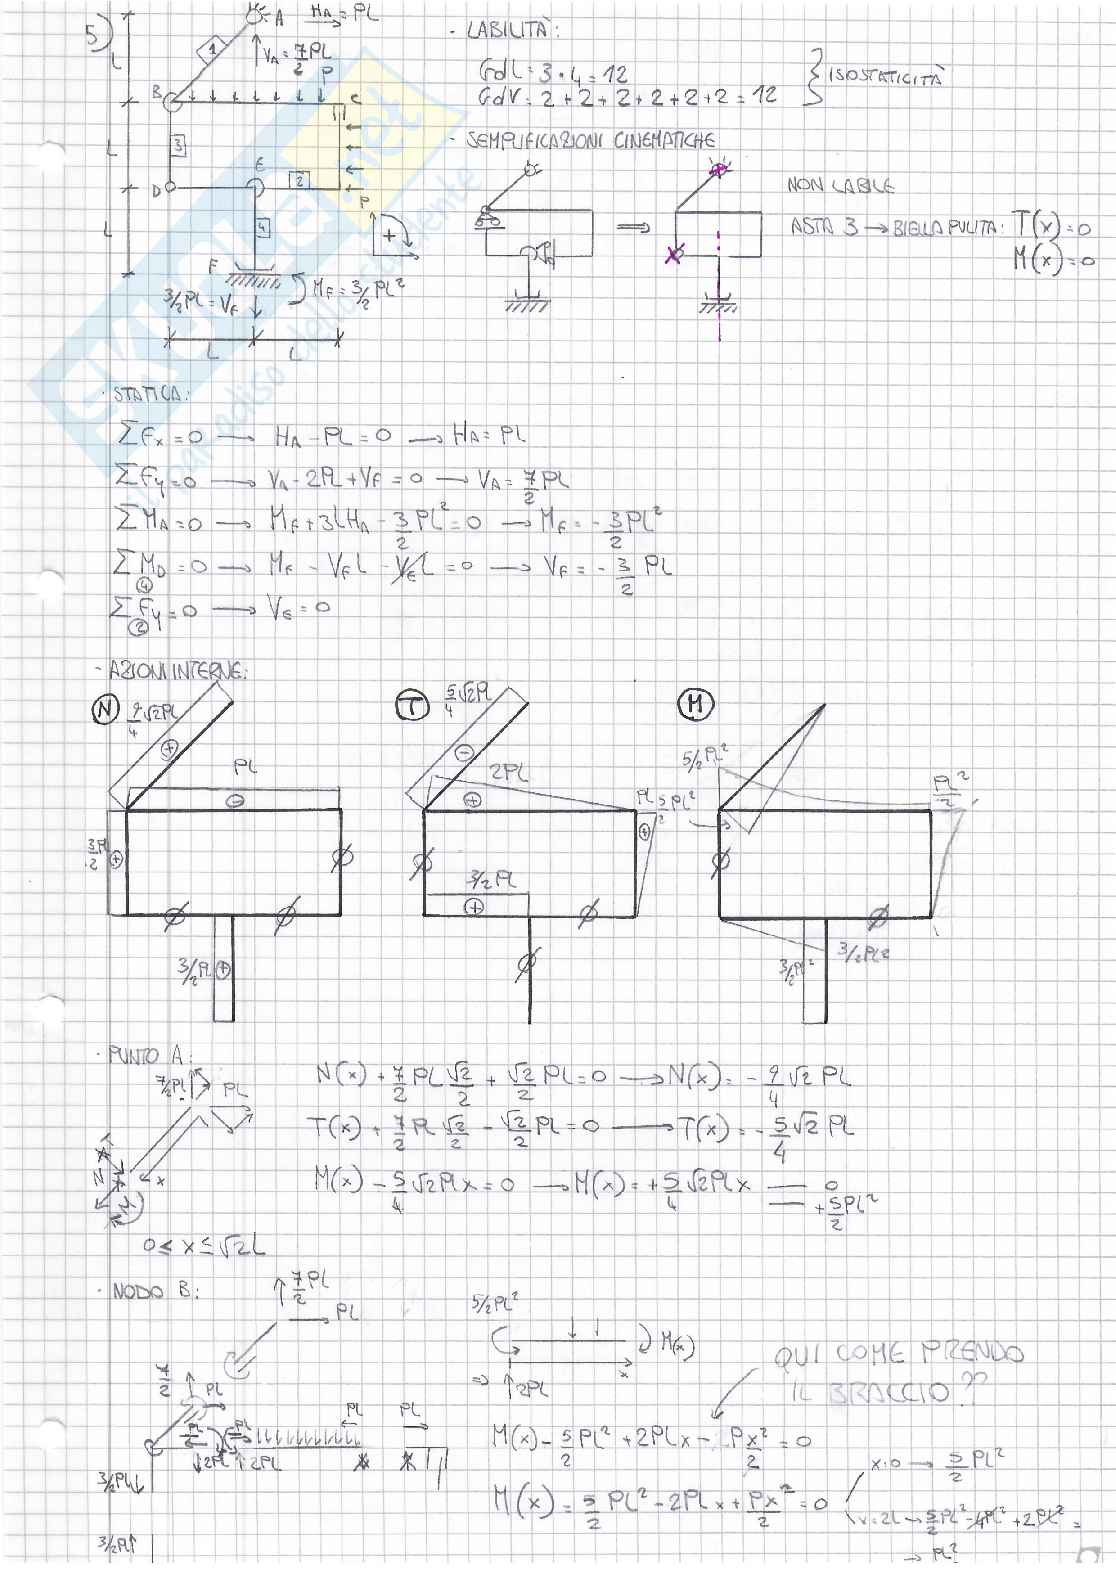 5)
A
H_A = PL
V_A = 7/2 PL
P
1
B
C
L
3
E
2
D
P
L
4
L
F
M_F = 3/2 PL²
3/2 PL = V_F
L
L
- LABILITÀ:
GdL = 3 · 4 = 12
GdV = 2 + 2 + 2 + 2 + 2 + 2 = 12
} ISOSTATICITÀ
- SEMPLIFICAZIONI CINEMATICHE
⟹
NON LABILE
ASTA 3 → BIELLA PULITA: T(x) = 0
M(x) = 0
SKUOLA.net
il paradiso dello studente
· STATICA:
ΣFx = 0 → H_A - PL = 0 → H_A = PL
ΣFy = 0 → V_A - 2PL + V_F = 0 → V_A = 7/2 PL
ΣM_A = 0 → M_F + 3LH_A - 3/2 PL² = 0 → M_F = - 3/2 PL²
ΣM_D = 0 → M_F - V_F L - V_E L = 0 → V_F = - 3/2 PL
④
ΣFy = 0 → V_E = 0
②
- AZIONI INTERNE:
N
9/4 √2 PL
+
PL
-
3/2 PL
+
Ø
Ø
Ø
3/2 PL
+
T
5/4 √2 PL
-
2PL
+
PL
+
Ø
3/2 PL
+
Ø
Ø
M
5/2 PL²
5/2 PL²
PL²/2
Ø
Ø
3/2 PL²
3/2 PL²
· PUNTO A:
7/2 PL
PL
T
N
x
M
0 ≤ x ≤ √2 L
N(x) + 7/2 PL √2/2 + √2/2 PL = 0 → N(x) = - 9/4 √2 PL
T(x) + 7/2 PL √2/2 - √2/2 PL = 0 → T(x) = - 5/4 √2 PL
M(x) - 5/4 √2 PLx = 0 → M(x) = + 5/4 √2 PLx — 0
— + 5/2 PL²
· NODO B:
7/2 PL
PL
7/2
PL
PL
PL
PL
PL
2PL
2PL
3/2 PL
3/2 PL
5/2 PL²
M(x)
x
⇒
2PL
QUI COME PRENDO
IL BRACCIO??
M(x) - 5/2 PL² + 2PLx - Px²/2 = 0
M(x) = 5/2 PL² - 2PLx + Px²/2 = 0
x=0 → 5/2 PL²
x=2L → 5/2 PL² - 4PL² + 2PL² =
→ PL²